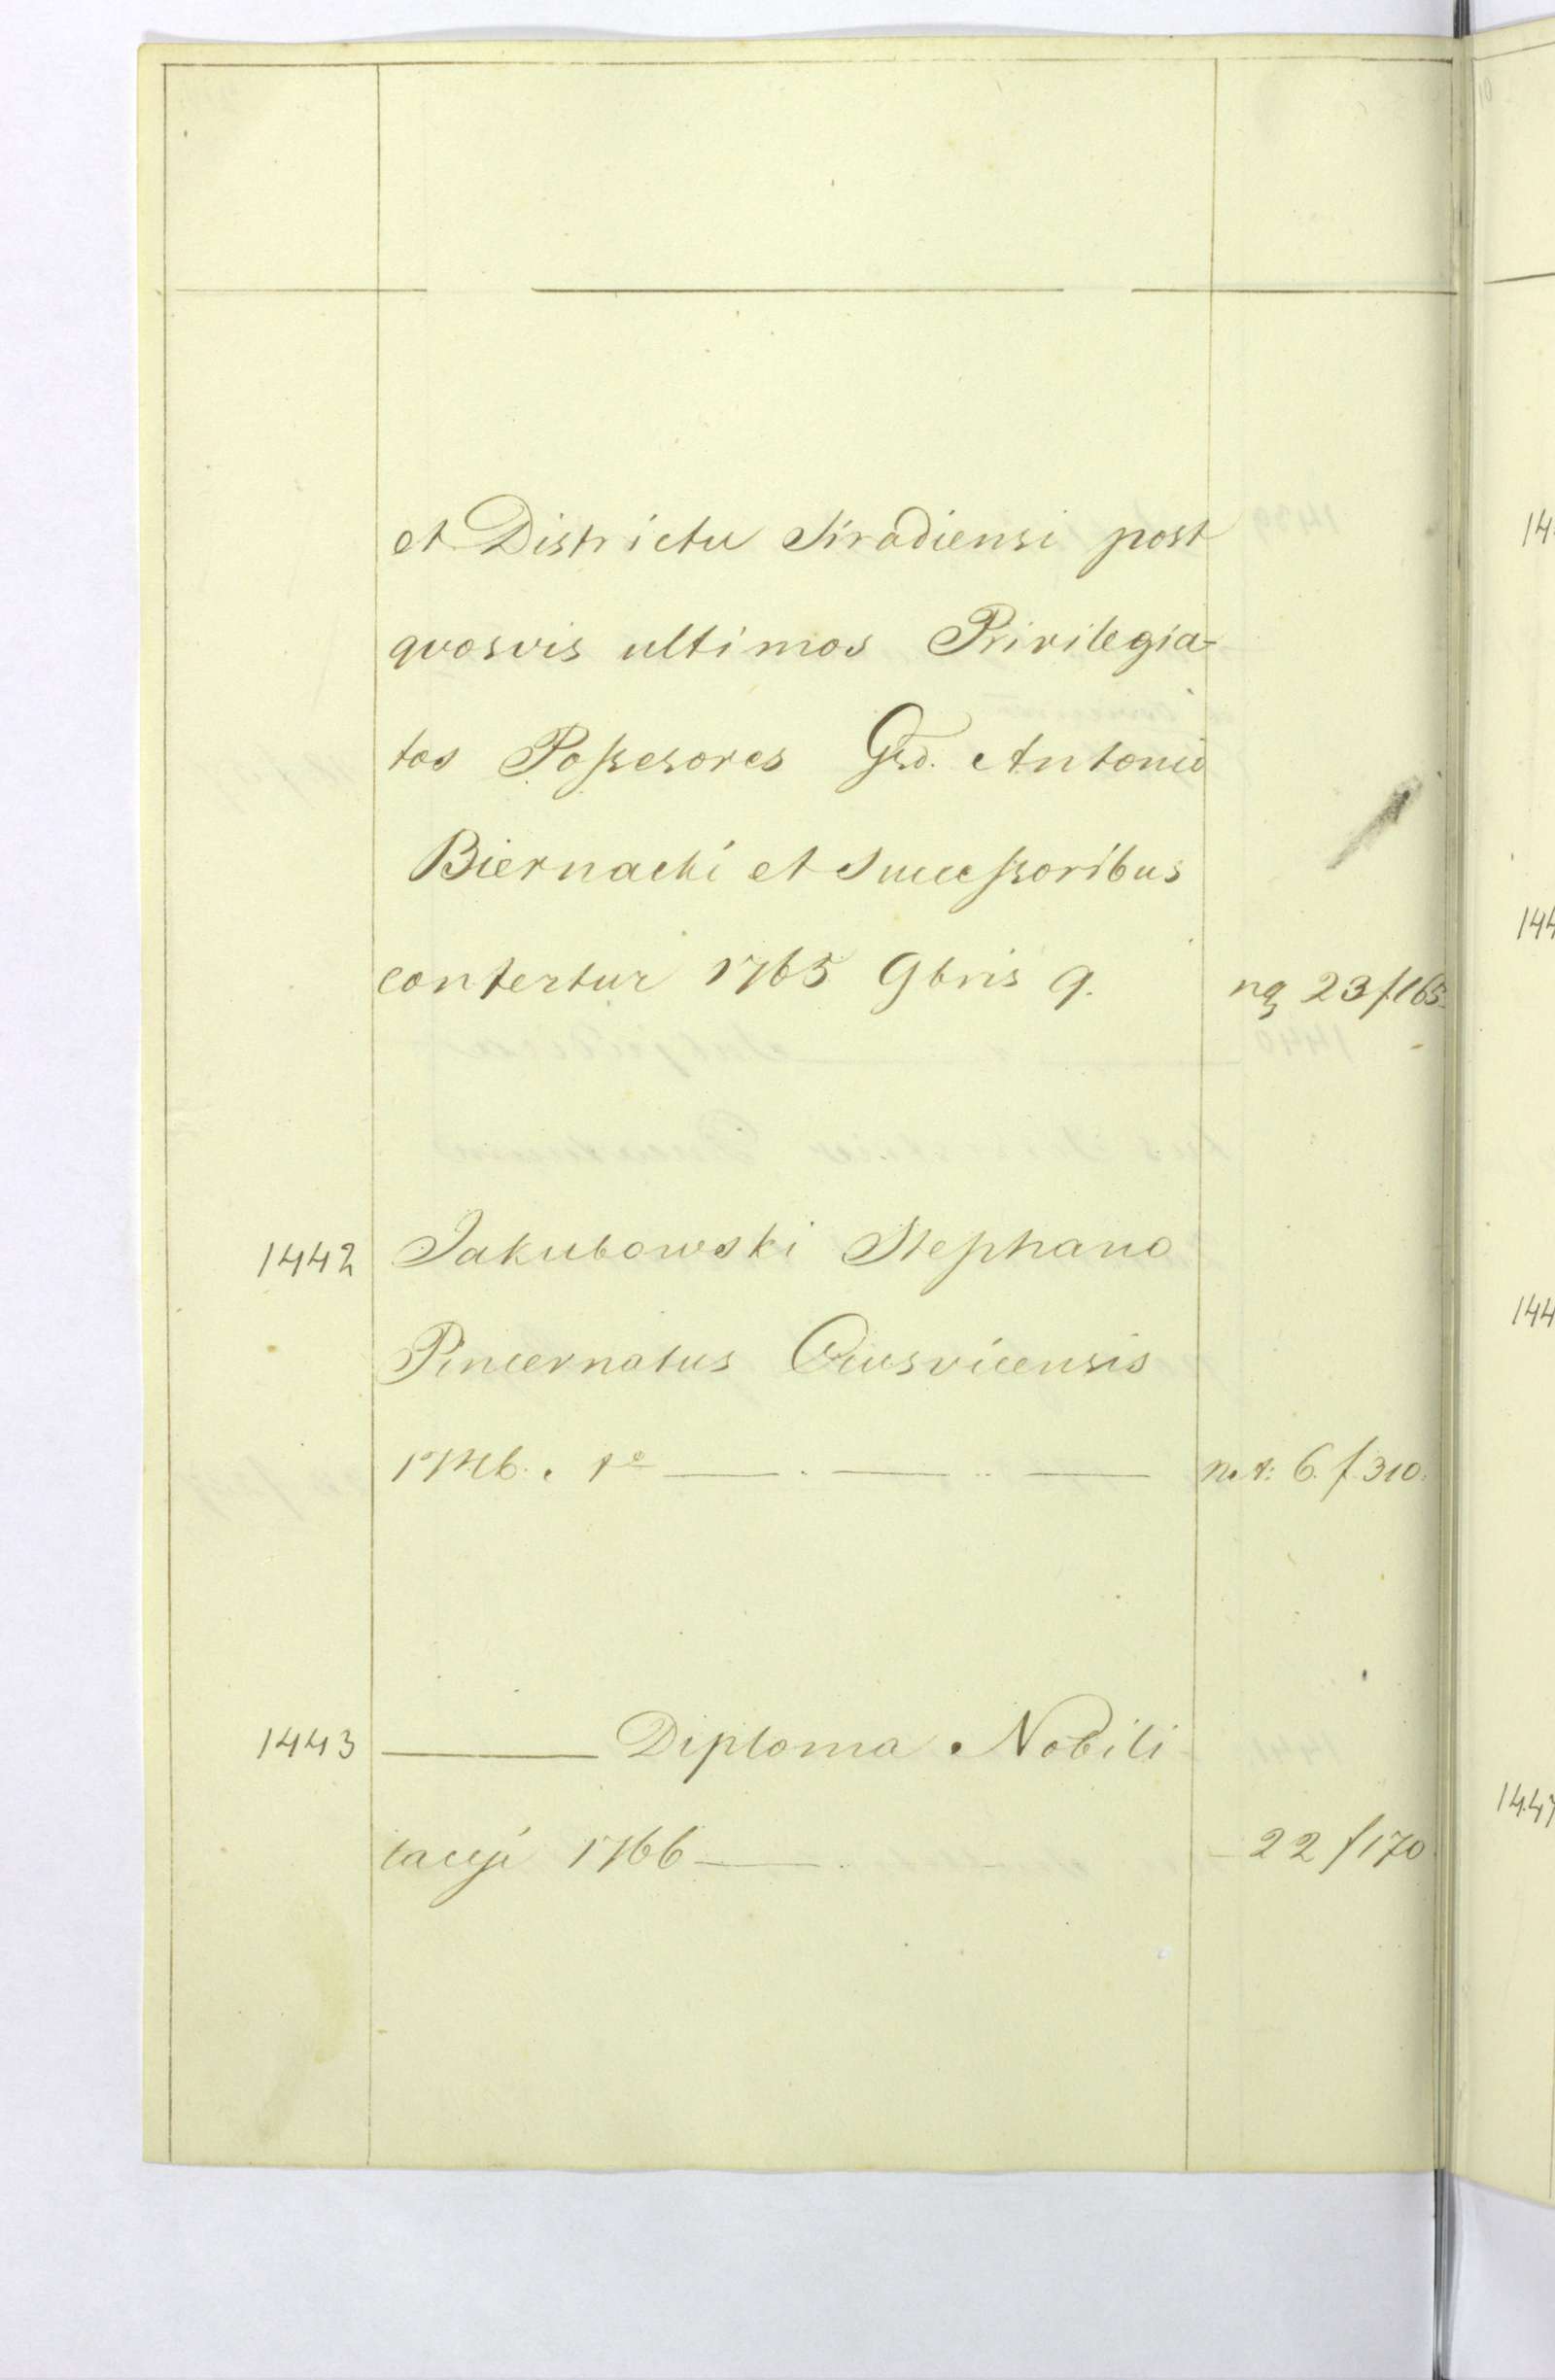 et Districtu Siradiensi post
quosvis ultimos Privilegia-
tos Possesores Gsd. Antonio
Biernacki et Successoribus
confertur 1765 9bris 9. nq 23 f. 165.
1442 Jakubowski Stephano
Pincernatus Owsvicensis
1746. n. t: 6. f. 310.
1443 Diploma Nobili
tacyi 1766 22 f 170
14
144
144
1447